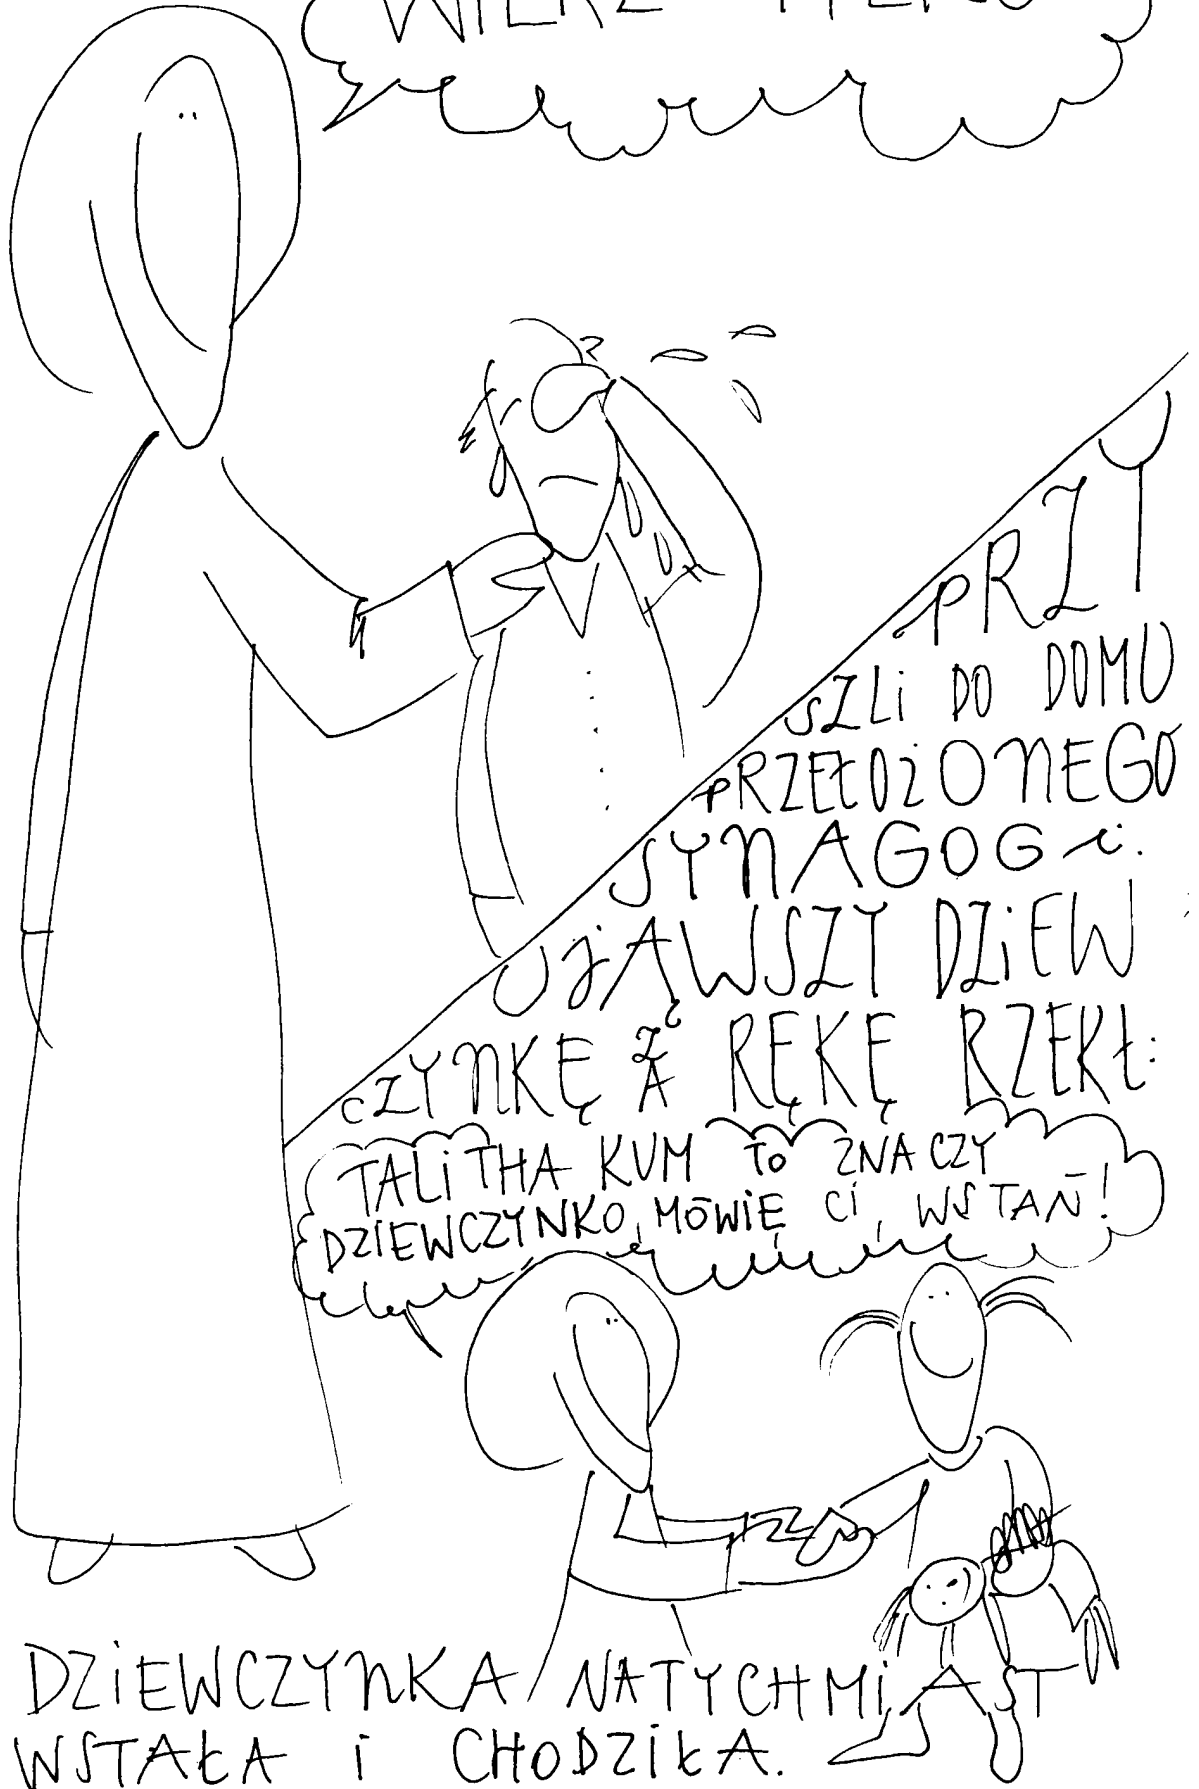 WIERZ TYLKO
PRZY
SZLI DO DOMU
PRZEŁOŻONEGO
SYNAGOGI.
UJĄWSZY DZIEW
CZYNKĘ ZA RĘKĘ RZEKŁ:
TALITHA KUM TO ZNACZY
DZIEWCZYNKO, MÓWIĘ CI, WSTAŃ!
DZIEWCZYNKA NATYCHMIAST
WSTAŁA I CHODZIŁA.